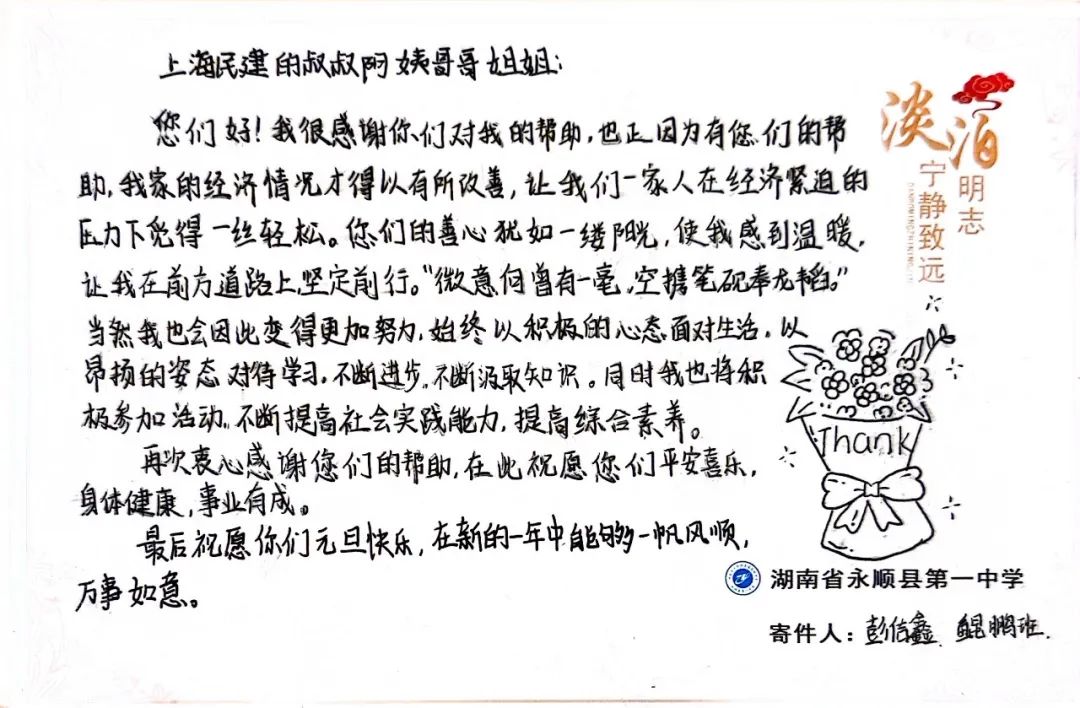 上海民建的叔叔阿姨哥哥姐姐:
您们好!我很感谢你们对我的帮助,也正因为有您们的帮
助,我家的经济情况才得以有所改善,让我们一家人在经济紧迫的
压力下觉得一丝轻松。您们的善心犹如一缕阳光,使我感到温暖,
让我在前方道路上坚定前行。“微意何曾有一毫,空携笔砚奉龙韬。”
当然我也会因此变得更加努力,始终以积极的心态面对生活,以
昂扬的姿态对待学习,不断进步,不断汲取知识。同时我也将积
极参加活动,不断提高社会实践能力,提高综合素养。
再次衷心感谢您们的帮助,在此祝愿您们平安喜乐,
身体健康,事业有成。
最后祝愿你们元旦快乐,在新的一年中能够一帆风顺,
万事如意。
淡泊
明志
宁静致远
Thank
湖南省永顺县第一中学
寄件人:彭信鑫 鲲鹏班.